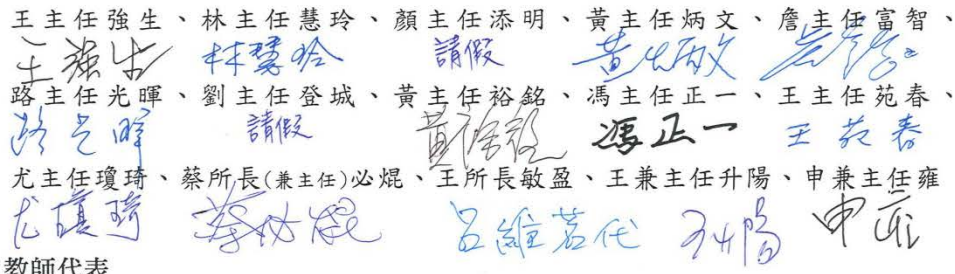 王主任強生、林主任慧玲、顏主任添明、黃主任炳文、詹主任富智、
王強生 林慧玲 請假 黃炳文
路主任光暉、劉主任登城、黃主任裕銘、馮主任正一、王主任苑春、
路光暉 請假 黃裕銘 馮正一 王苑春
尤主任瓊琦、蔡所長(兼主任)必焜、王所長敏盈、王兼主任升陽、申兼主任雍
尤瓊琦 蔡必焜 呂維茗代 申雍
教師代表